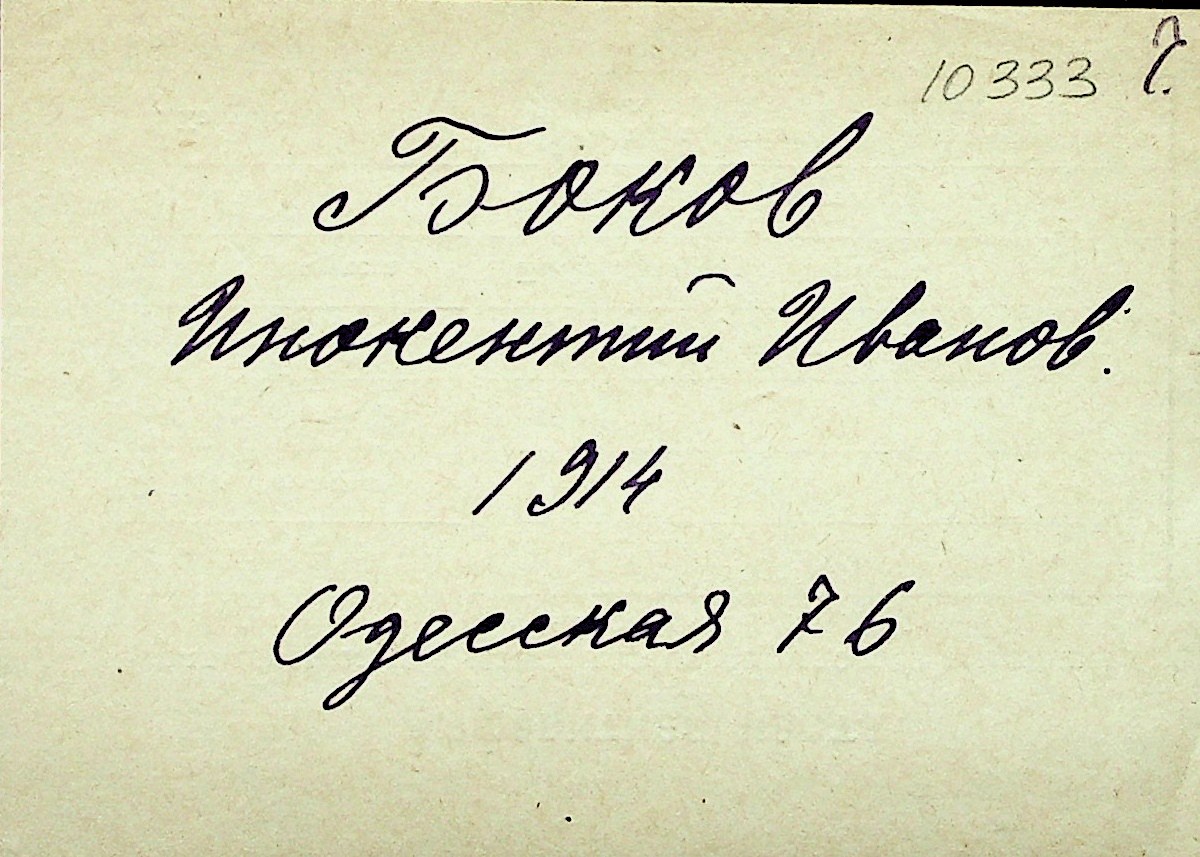 10333
Боков
Инокентий Иванов.
1914
Одесская 76